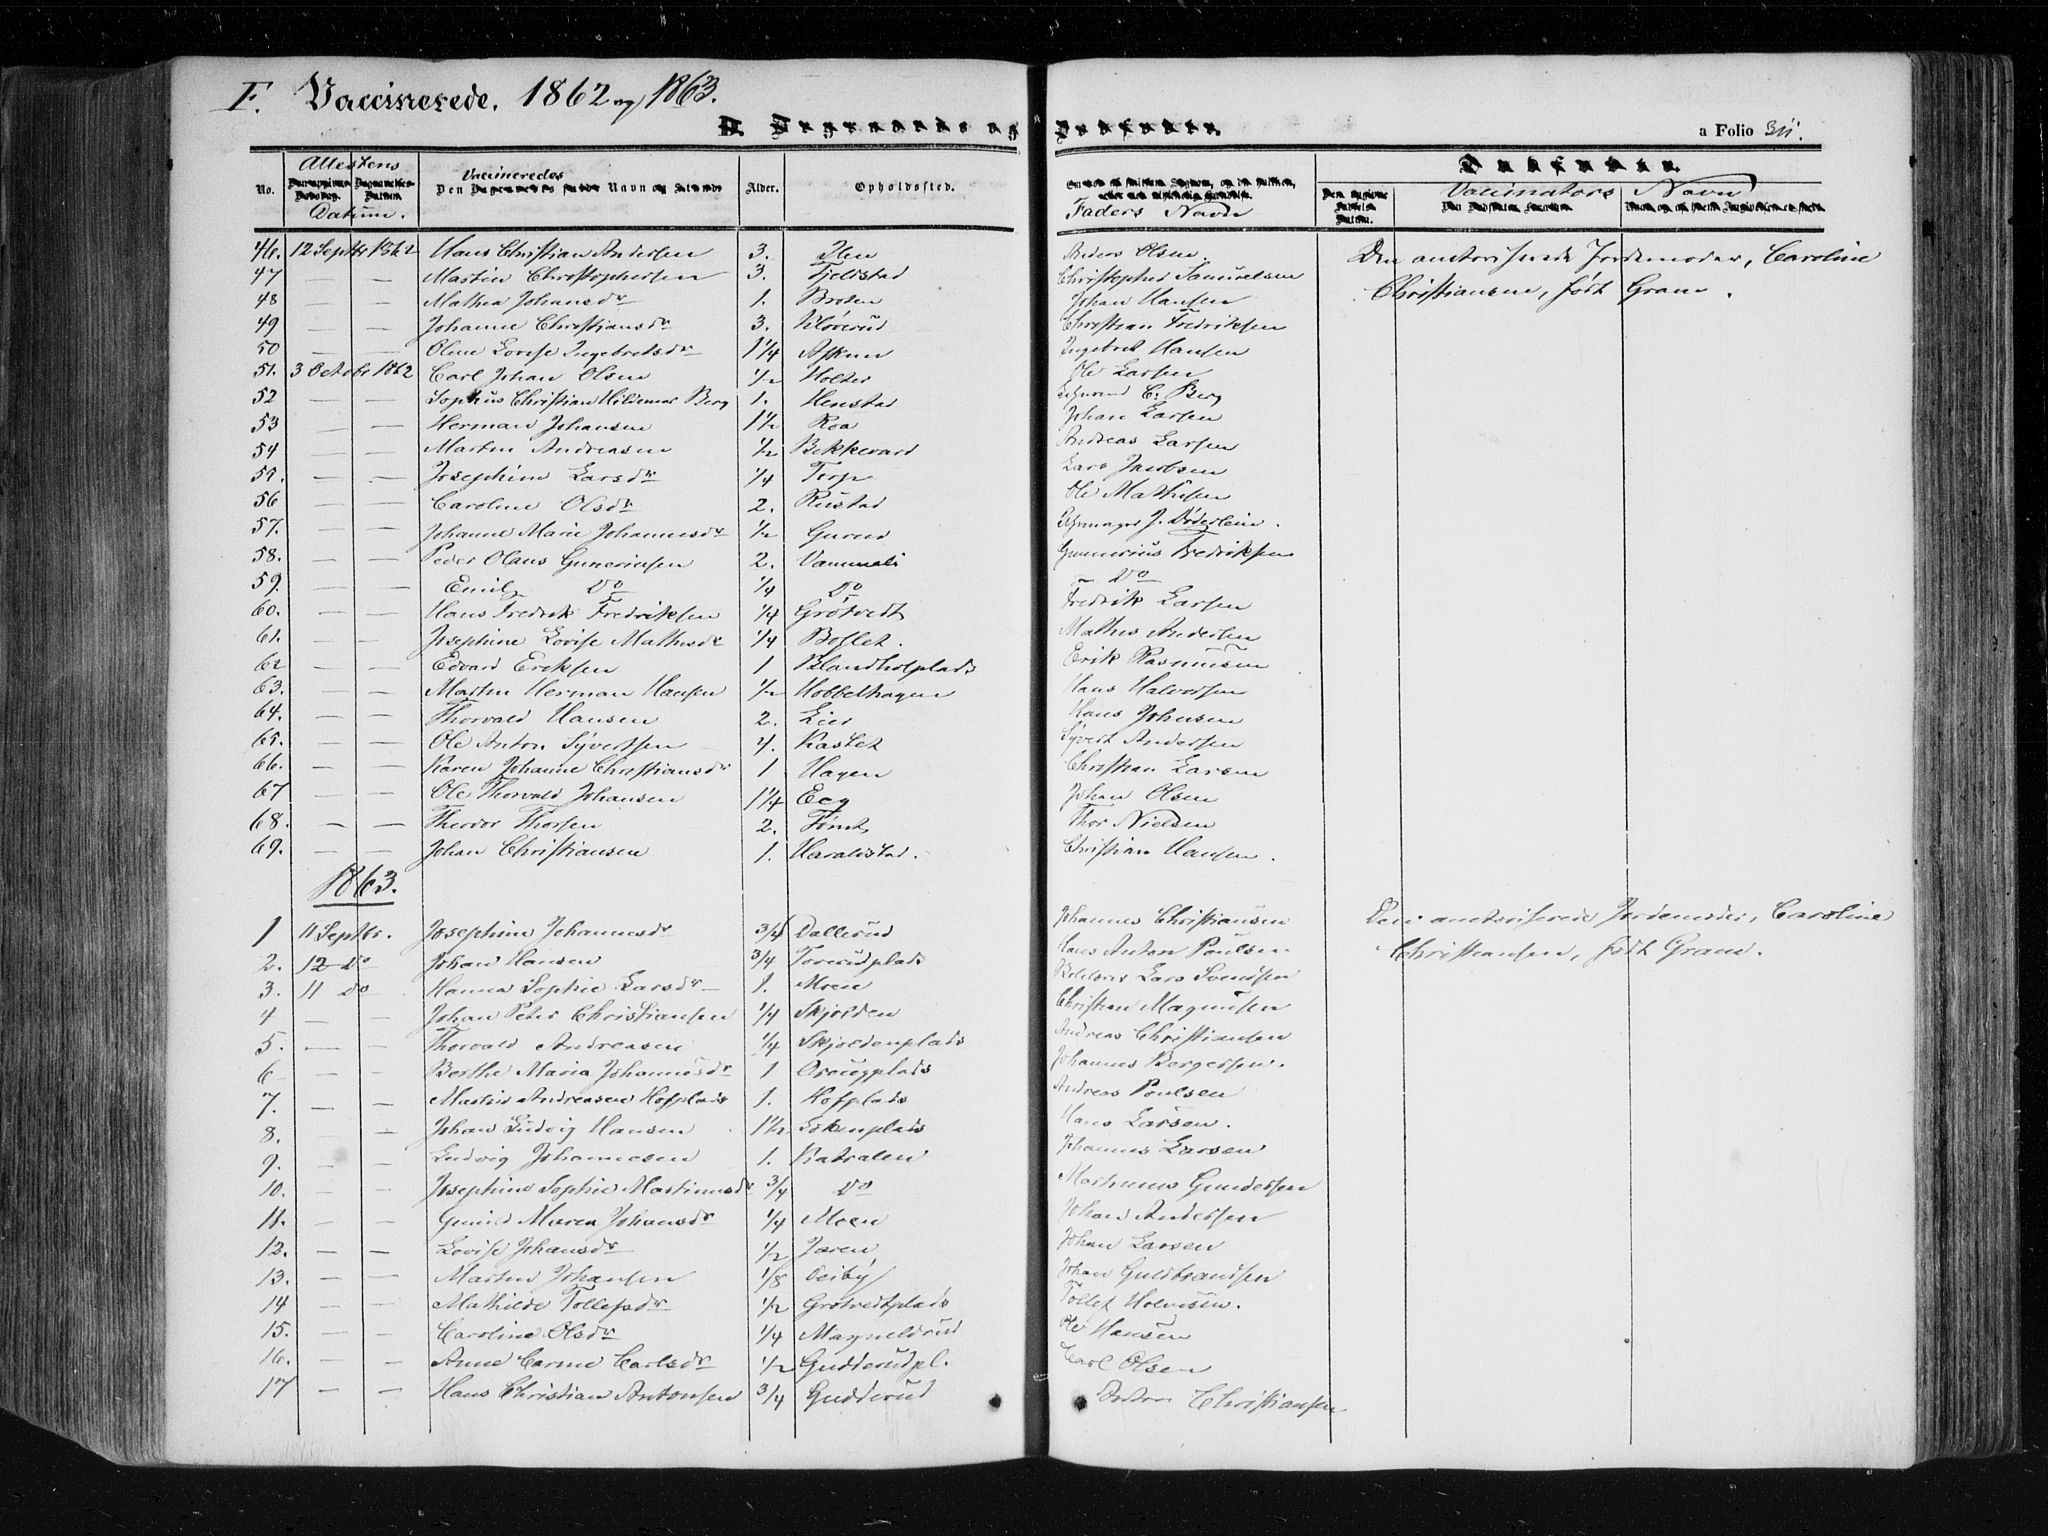 F. Vaccinerede, 1862 og 1863.
a Folio 311.
No. Attestens Datum. Vaccineredes Navn Alder. Opholdssted. Faders Navn Vaccinators Navn
46. 12 Septbr 1862 Hans Christian Andersen 3. Olen Anders Olsen Den auctoriserede Jordemoder, Caroline
47 — — Martin Christophersen 3. Fjeldstad Christopher Samuelsen Christiansen, født Gram.
48 — — Mathea Johansdr 1. Braten Johan Hansen
49 — — Johanne Christiansdr 3. Kløverud Christian Fredriksen
50 — — Oline Lovise Ingebretsdr 1 1/4 Askum Ingebret Hansen
51. 3 Octobr 1862 Carl Johan Olsen 1/2 Holter Ole Larsen
52 — — Sophus Christian Hildemar Berg 1. Henstad C. Berg
53 — — Herman Johansen 1 1/2 Roa Johan Larsen
54 — — Martin Andreasen 1/2 Bekkevard Andreas Larsen
55. — — Josephine Larsdr 1/4 Torp Lars Jacobsen
56 — — Caroline Olsdr 2. Rustad Ole Mathisen
57. — — Johanne Marie Johannesdr 1/2 Gurud J. Døderlein.
58. — — Peder Olaus Gunerinsen 2. Vammeli Gunnerius Fredriksen
59. — — Emil Do 1/4 Do Do
60. — — Hans Fredrik Fredriksen 1/4 Grøtvedt Fredrik Larsen
61. — — Josephine Lovise Mathisdr 1/4 Boslet. Mathis Andersen
62 — — Edvard Eriksen 1 Blandholplads Erik Rasmusen
63. — — Martin Herman Hansen 1/2 Hobbelhagen Hans Halvorsen
64. — — Thorvald Hansen 2. Lier Hans Johnsen
65. — — Ole Anton Syvertsen 4. Kaslet Syvert Andersen
66. — — Karen Johanne Christiansdr 1 Hagen Christian Larsen
67 — — Ole Thorvald Johansen 1 1/4 Eeg Johan Olsen
68. — — Theodor Thorsen 2. Tomt Thor Nielsen
69. — — Johan Christiansen 1. Haraldstad. Christian Hansen.
1863.
1 11 Septbr. Josephine Johannesdr 3/4 Dallerud Johannes Christiansen Den auctoriserede Jordemoder, Caroline
2. 12 Do Johan Hansen 3/4 Toverudplads Hans Anton Poulsen Christiansen, født Gram.
3. 11 do Hanna Sophie Larsdr 1. Moen Lars Svendsen
4 — — Johan Peter Christiansen 1/4 Skjolden Christian Magnusen
5. — — Thorvald Andreasen 1/4 Skjoldenplads Andreas Christiansen
6 — — Berthe Maria Johannesdr 1 Johannes Bergersen.
7. — — Andreasen Hofplads 1. Hofplads Andreas Poulsen
8. — — Johan Ludvig Hansen 1 1/2 Løkenplads Hans Larsen.
9. — — Ludvig Johannesen 1. Katralen Johannes Larsen
10. — — Josephine Sophie Martinusdr 3/4 Do Martinus Gundersen
11. — — Maren Johansdr 1/4 Moen Johan Andersen
12. — — Lovise Johansdr 1/2 Jaren Johan Larsen
13. — — Martin Johansen 1/8 Oeiby Johan Guldbrandsen
14 — — Mathilde Tollefsdr 1/2 Grøtvedtplads Tollef
15. — — Caroline Olsdr 1/4 Magneldrud Ole Hansen
16. — — Anne Carine Carlsdr 1/2 Gudderudpl. Carl Olsen
17 — — Hans Christian Antonsen 3/4 Gudderud Anton Christiansen